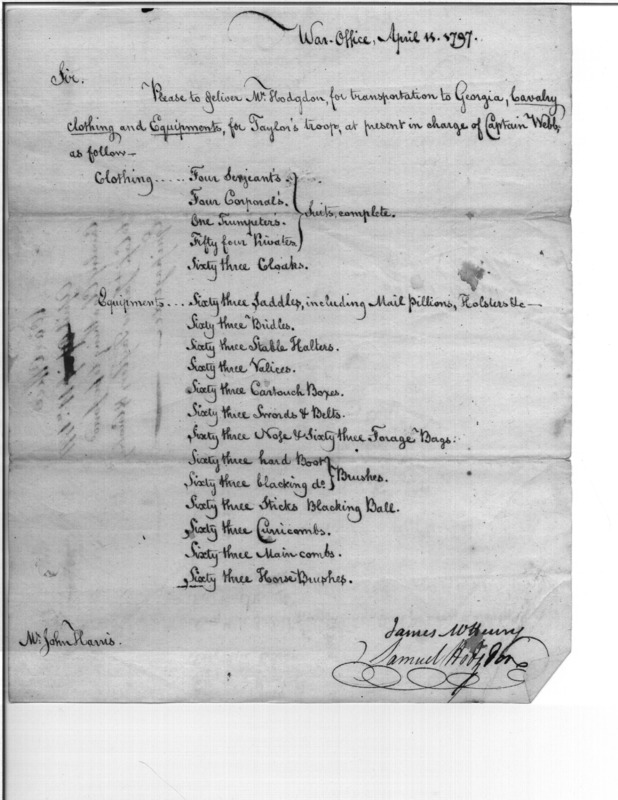 War-Office, April 11. 1797.
Sir.
Please to deliver Mr. Hodgdon, for transportation to Georgia, Cavalry
clothing and Equipments, for Taylor's troop, at present in charge of Captain Webb,
as follow—
Clothing ..... Four Serjeant's.
Four Corporal's.
One Trumpeter's.
Fifty four Privates
} Suits, complete.
Sixty three Cloaks.
Equipments ... Sixty three Saddles, including Mail pillions, Holsters &c—
Sixty three Bridles.
Sixty three Stable Halters.
Sixty three Valices.
Sixty three Cartouch Boxes.
Sixty three Swords & Belts.
Sixty three Nose & Sixty three Forage Bags.
Sixty three hard Boot
Sixty three blacking do.
} Brushes.
Sixty three Sticks Blacking Ball.
Sixty three Curricombs.
Sixty three Main combs.
Sixty three Horse Brushes.
James McHenry
Mr. John Harris.
Samuel Hodgdon